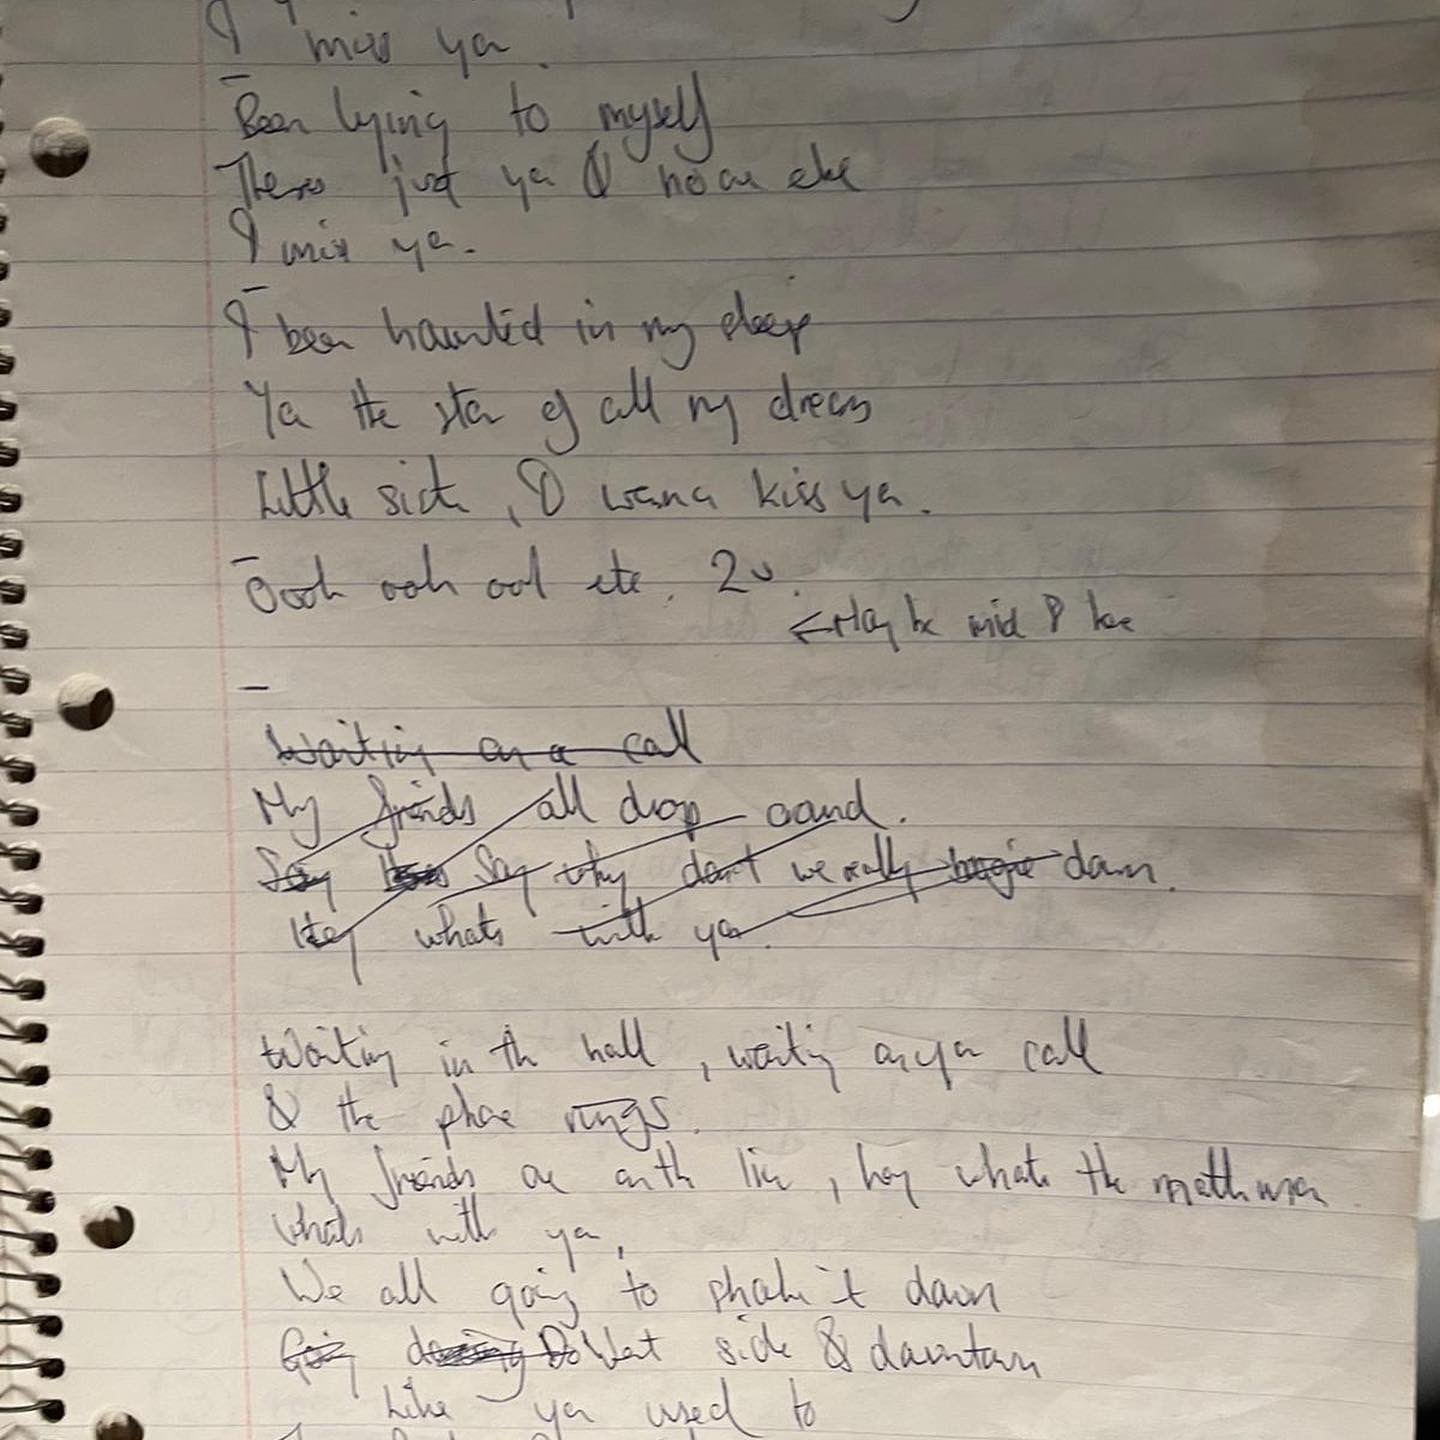 I miss ya.
Been lying to myself
Theres just ya & noone else
I miss ya.
I been haunted in my sleep
Ya the star of all my dreams
Little sista, I wanna kiss ya.
Oooh ooh ooh etc. 2
← Maybe mid 8 here
Waiting on a call
My friends all drop around.
Say Say why don't we really boogie down.
Hey whats with ya.
Waiting in the hall, waiting on ya call
& the phone rings.
My friends are on the line, hey whats the matter man
Whats with ya,
We all going to shake it down
Going West side & downtown
Like ya used to